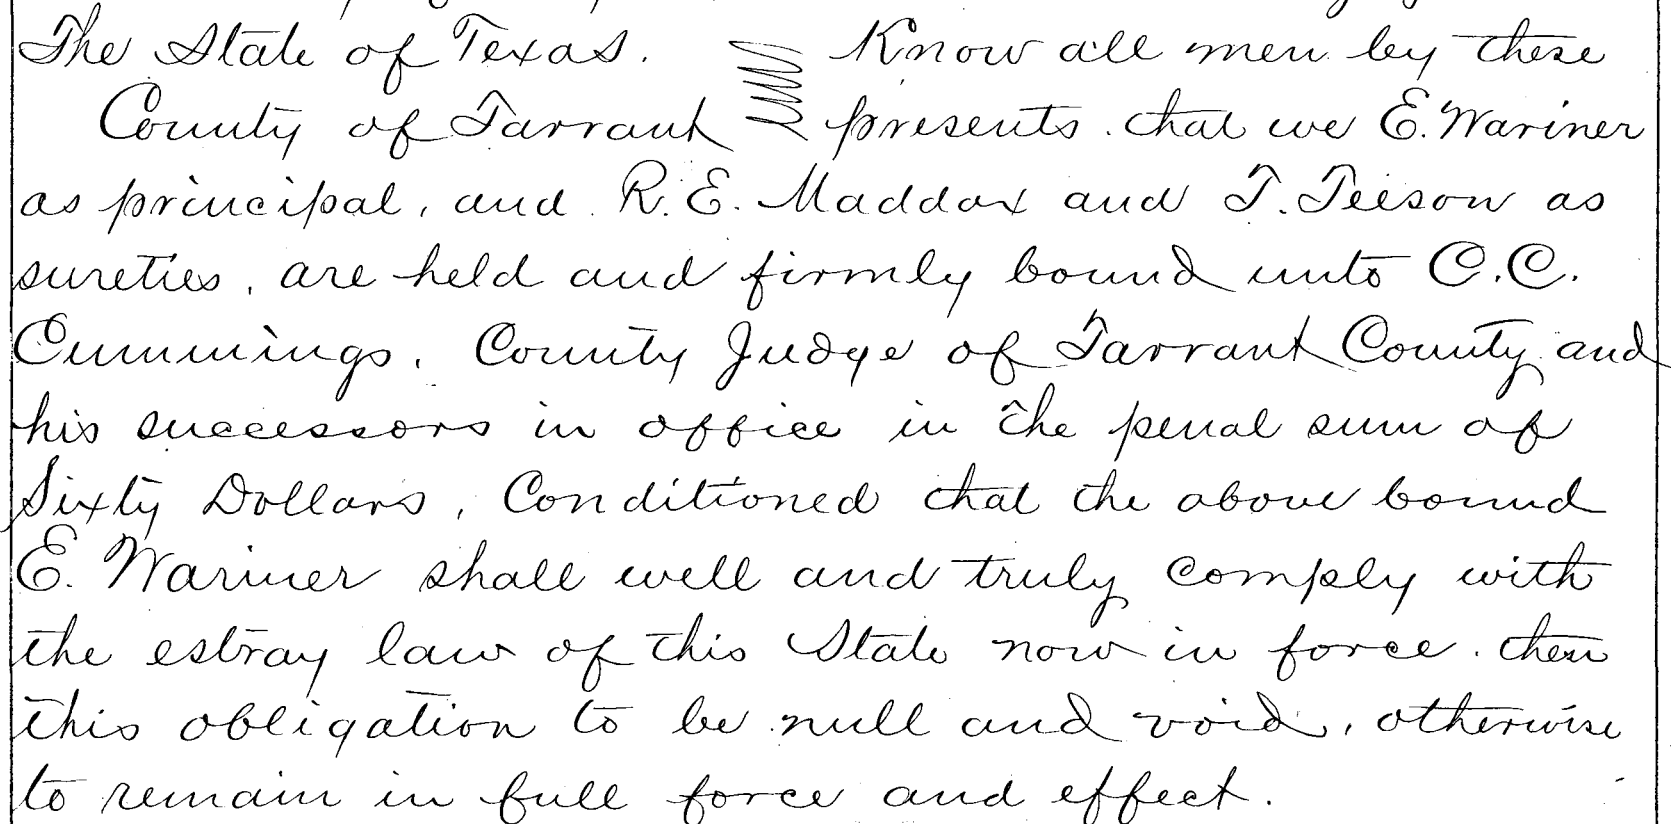 The State of Texas. Know all men by these
County of Tarrant presents. that we E. Wariner
as principal, and R. E. Maddox and T. Teeson as
sureties, are held and firmly bound unto C. C.
Cummings. County Judge of Tarrant County and
his successors in office in the penal sum of
Sixty Dollars, Conditioned that the above bound
E. Wariner shall well and truly comply with
the estray law of this State now in force. then
this obligation to be null and void, otherwise
to remain in full force and effect.